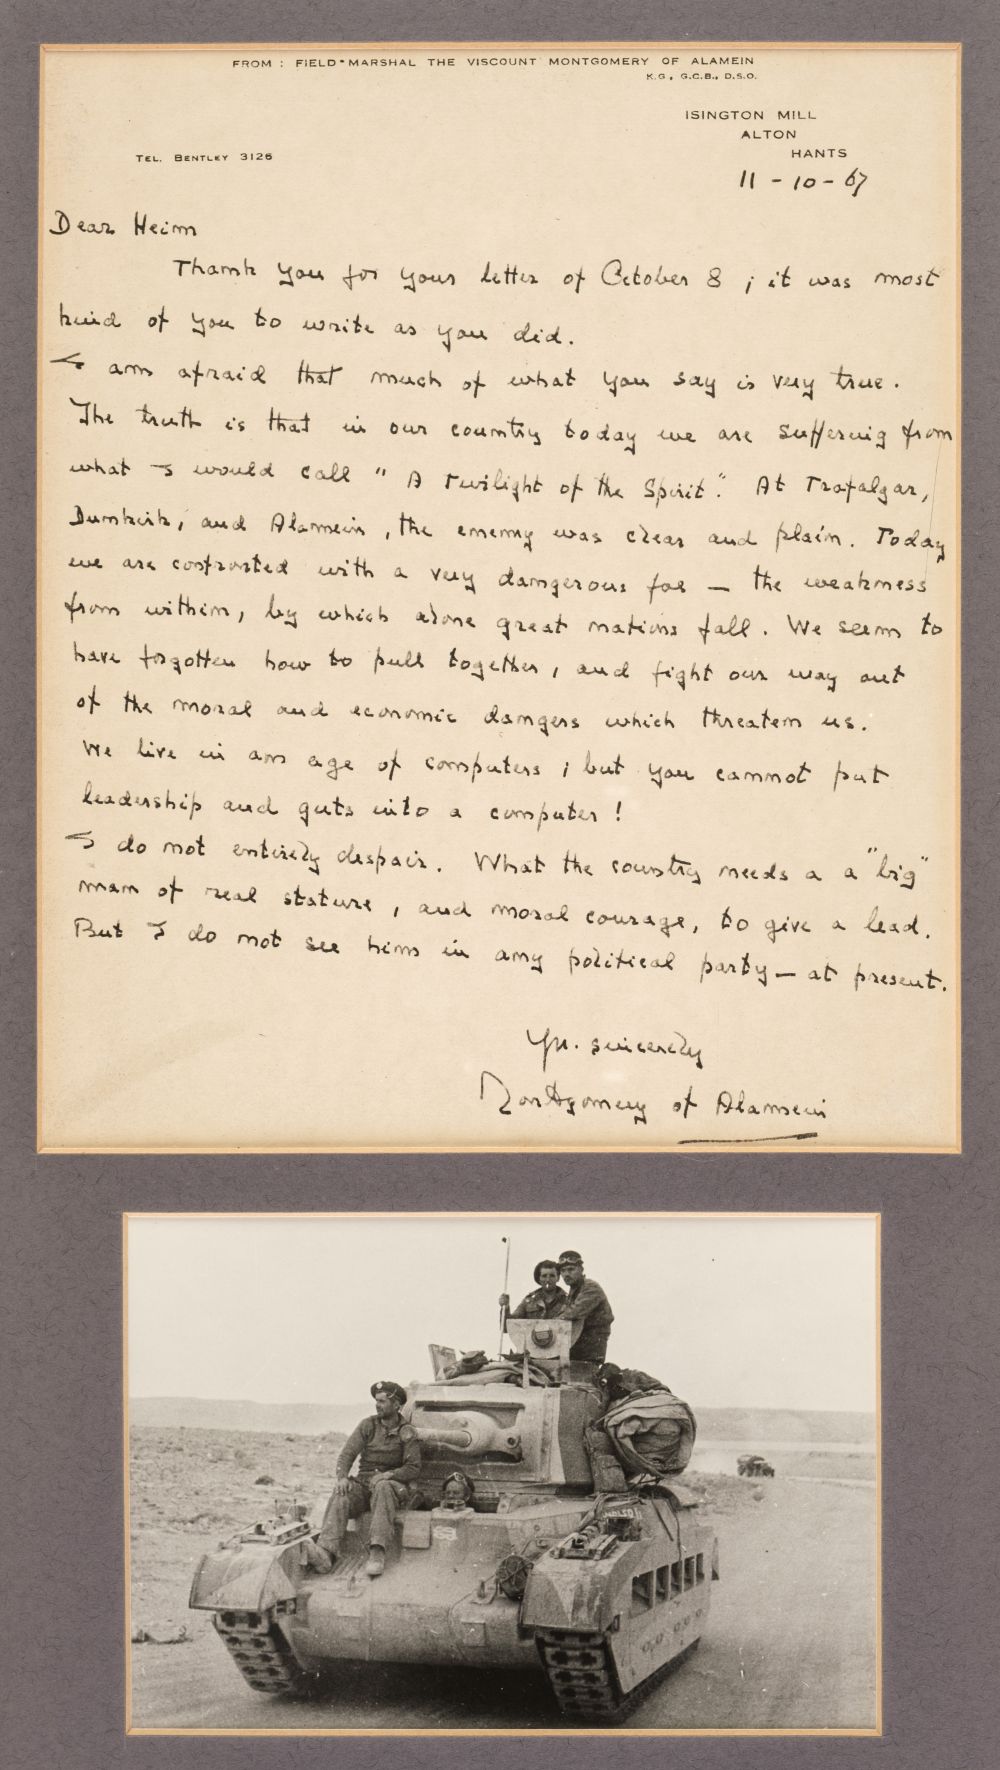 FROM : FIELD-MARSHAL THE VISCOUNT MONTGOMERY OF ALAMEIN
K.G., G.C.B., D.S.O.
ISINGTON MILL
ALTON
HANTS
TEL. BENTLEY 3126
11 - 10 - 67
Dear Heim
Thank you for your letter of October 8 ; it was most
kind of you to write as you did.
I am afraid that much of what you say is very true.
The truth is that in our country today we are suffering from
what I would call " A Twilight of the Spirit". At Trafalgar,
Dunkirk, and Alamein, the enemy was clear and plain. Today
we are confronted with a very dangerous foe — the weakness
from within, by which alone great nations fall. We seem to
have forgotten how to pull together, and fight our way out
of the moral and economic dangers which threaten us.
We live in an age of computers ; but you cannot put
leadership and guts into a computer !
I do not entirely despair. What the country needs a a "big"
man of real stature, and moral courage, to give a lead.
But I do not see him in any political party — at present.
Yrs. sincerely
Montgomery of Alamein